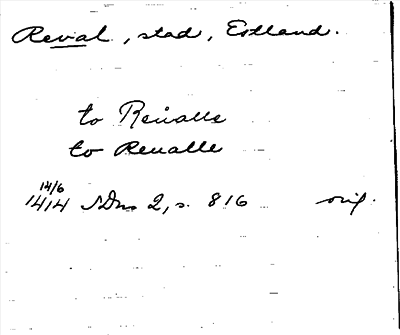 Reval, stad, Estland.
to Reualle
to Reualle
14/6
1414 SDns 2, s. 816 orig.